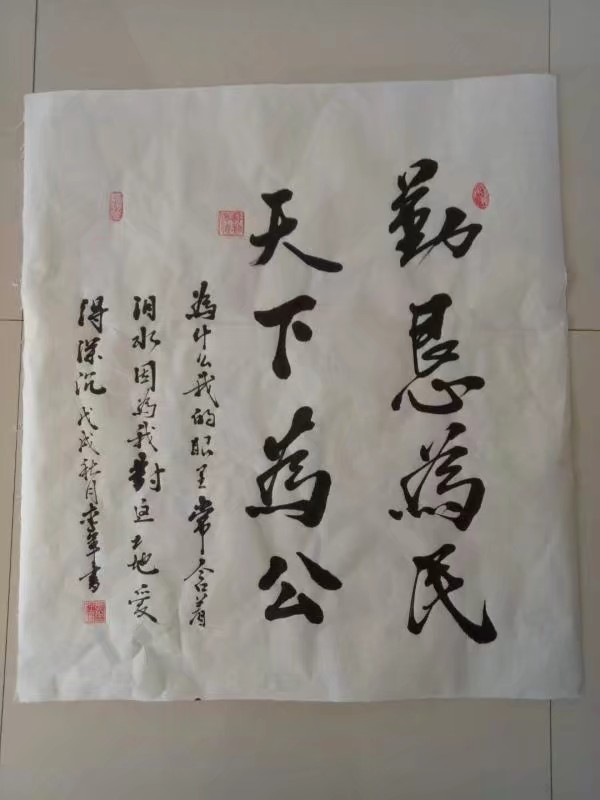 勤恳為民
天下為公
為什么我的眼里常含着
泪水因為我對这土地爱
得深沉戊戌秋月李军書